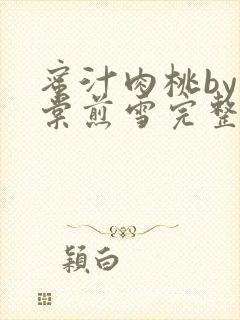 蜜汁肉桃by
棠煎雪完整
颖白